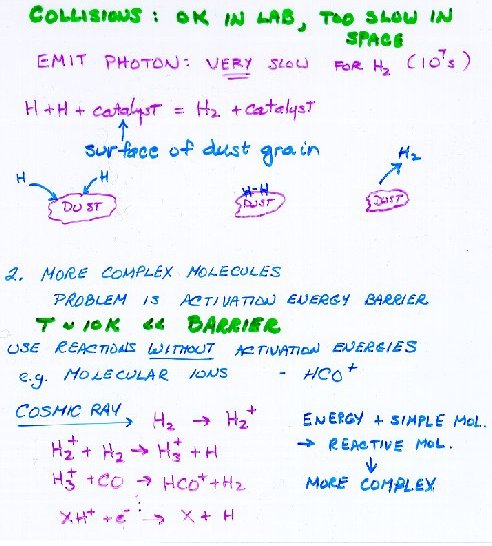 COLLISIONS: OK IN LAB, TOO SLOW IN
SPACE
EMIT PHOTON: VERY SLOW FOR H₂ (10⁷s)
H + H + catalyst = H₂ + catalyst
surface of dust grain
H H H-H H₂
DUST DUST DUST
2. MORE COMPLEX MOLECULES
PROBLEM IS ACTIVATION ENERGY BARRIER
T ~ 10K << BARRIER
USE REACTIONS WITHOUT ACTIVATION ENERGIES
e.g. MOLECULAR IONS - HCO⁺
COSMIC RAY H₂ → H₂⁺
H₂⁺ + H₂ → H₃⁺ + H
H₃⁺ + CO → HCO⁺ + H₂
XH⁺ + e⁻ → X + H
ENERGY + SIMPLE MOL.
→ REACTIVE MOL.
↓
MORE COMPLEX